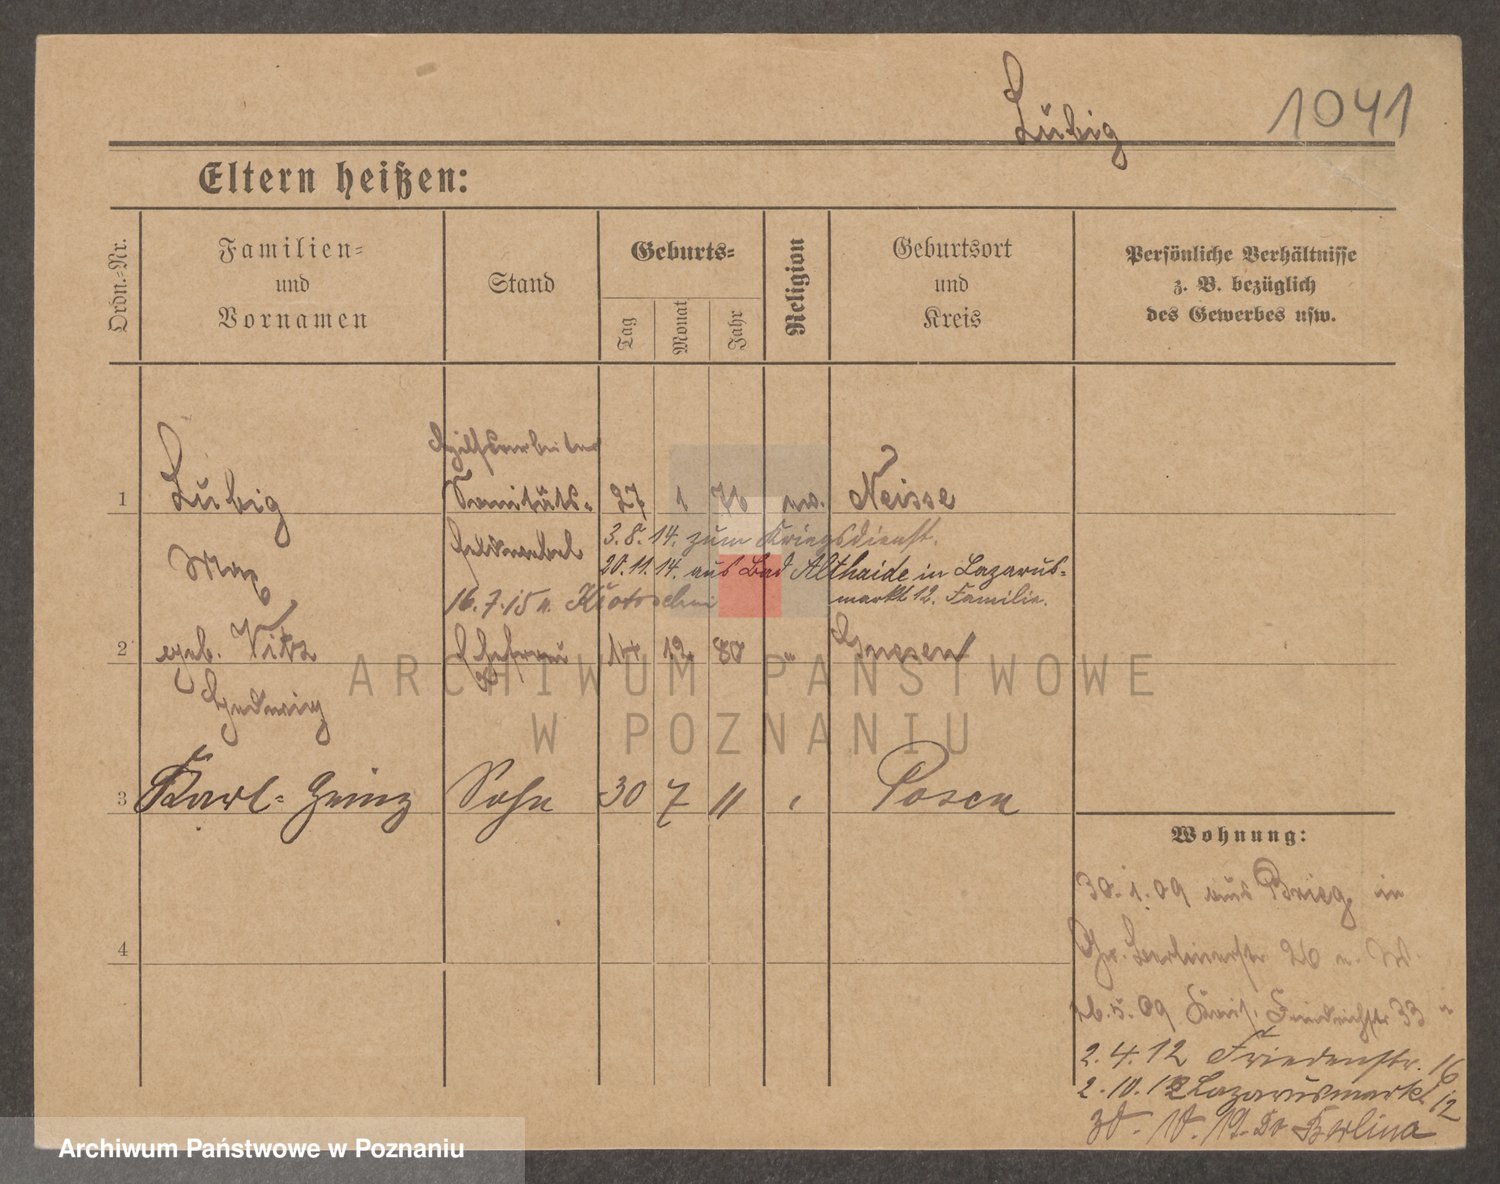 Lubig
1041
Eltern heißen:
Ordn.-Nr.
Familien-
und
Vornamen
Stand
Geburts-
Tag
Monat
Jahr
Religion
Geburtsort
und
Kreis
Persönliche Verhältnisse
z. B. bezüglich
des Gewerbes usw.
Hilfsarbeiter
1 Lubig Sanitäts- 27 1 76 Neisse
Max feldwebel 3.8.14. zum Kriegsdienst.
20.11.14. aus Bad Althaide in Lazarus-
markt 12. Familie.
16.7.15 n. Krotoschin
2 geb. Ehefrau 14 12. 80 " Gnesen
Hedwig
3 Karl-Heinz Sohn 30 7 11 " Posen
4
Wohnung:
30.1.09 aus Brieg in
Gr. Berlinerstr. 26
5.09 Kais. Friedrichstr 33
2.4.12 Friedenstr. 16
2.10.12 Lazarusmarkt 12
30. 10. 19. Do Berlina
ARCHIWUM PAŃSTWOWE
W POZNANIU
Archiwum Państwowe w Poznaniu